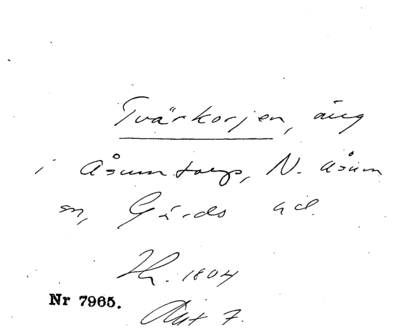 Tvärkorjen, äng
i Åsumtorp, N. Åsum
sn, Gärds hd.
Hr. 1804
Nr 7965.
Akt 7.